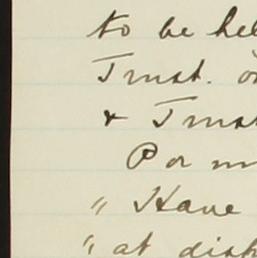 to be hel
Trust. or
& Trust
Por m
" Have
" at dish